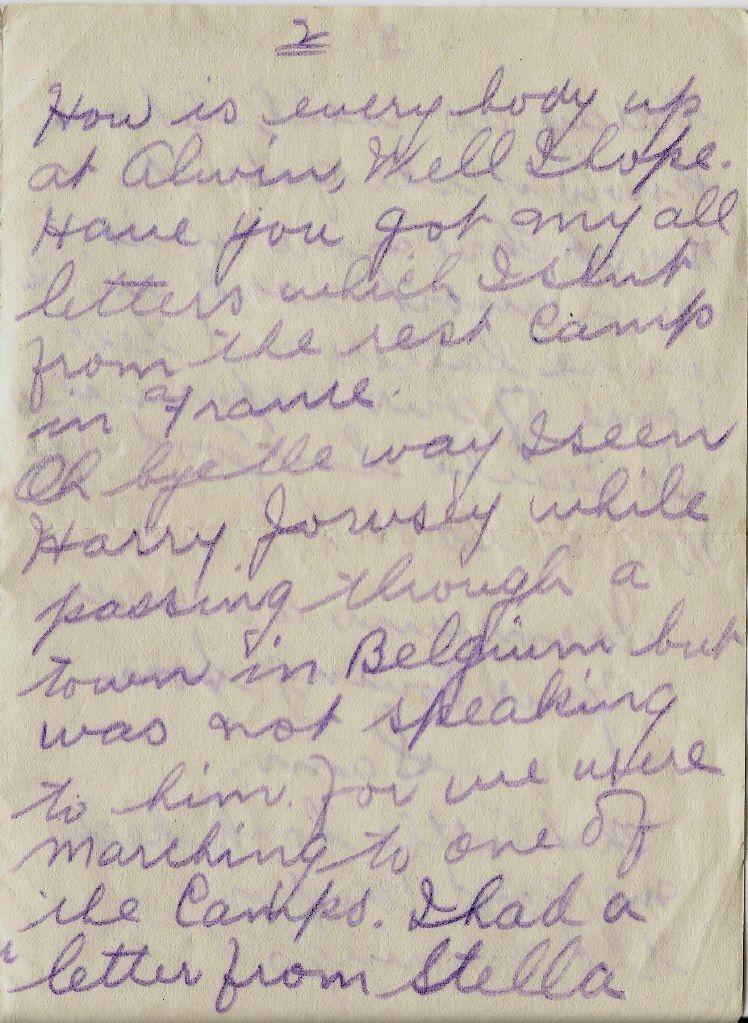 2
How is every body up
at Alwin, Well I hope.
Have you got my all
letters which I sent
from the rest Camp
in France.
Oh bye the way I seen
Harry while
passing through a
town in Belgium but
was not speaking
to him for we were
marching to one of
the Camps. I had a
letter from Stella